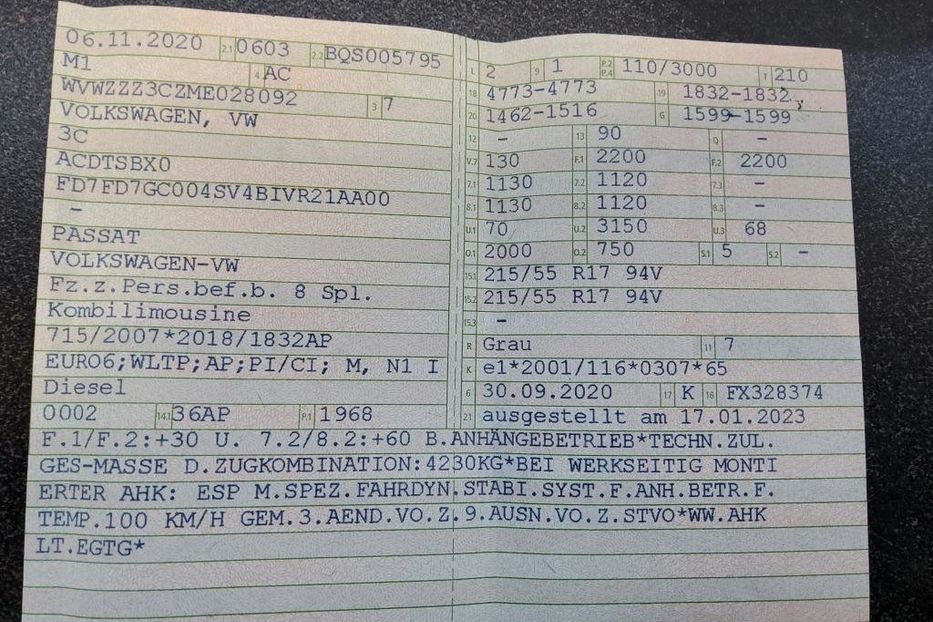 06.11.2020 2.1 0603 2.2 BQS005795
M1 4 AC
WVWZZZ3CZME028092 3 7
VOLKSWAGEN, VW
3C
ACDTSBX0
FD7FD7GC004SV4BIVR21AA00
–
PASSAT
VOLKSWAGEN-VW
Fz.z.Pers.bef.b. 8 Spl.
Kombilimousine
715/2007*2018/1832AP
EURO6;WLTP;AP;PI/CI; M, N1 I
Diesel
0002 14.1 36AP P.1 1968
L 2 9 1 P.2 P.4 110/3000 T 210
18 4773-4773 19 1832-1832
20 1462-1516 G 1599-1599
12 – 13 90 Q –
V.7 130 F.1 2200 F.2 2200
7.1 1130 7.2 1120 7.3 –
8.1 1130 8.2 1120 8.3 –
U.1 70 U.2 3150 U.3 68
O.1 2000 O.2 750 S.1 5 S.2 –
15.1 215/55 R17 94V
15.2 215/55 R17 94V
15.3 –
R Grau 11 7
K e1*2001/116*0307*65
6 30.09.2020 17 K 16 FX328374
21 ausgestellt am 17.01.2023
F.1/F.2:+30 U. 7.2/8.2:+60 B.ANHÄNGEBETRIEB*TECHN.ZUL.
GES-MASSE D.ZUGKOMBINATION:4230KG*BEI WERKSEITIG MONTI
ERTER AHK: ESP M.SPEZ.FAHRDYN.STABI.SYST.F.ANH.BETR.F.
TEMP.100 KM/H GEM.3.AEND.VO.Z.9.AUSN.VO.Z.STVO*WW.AHK
LT.EGTG*